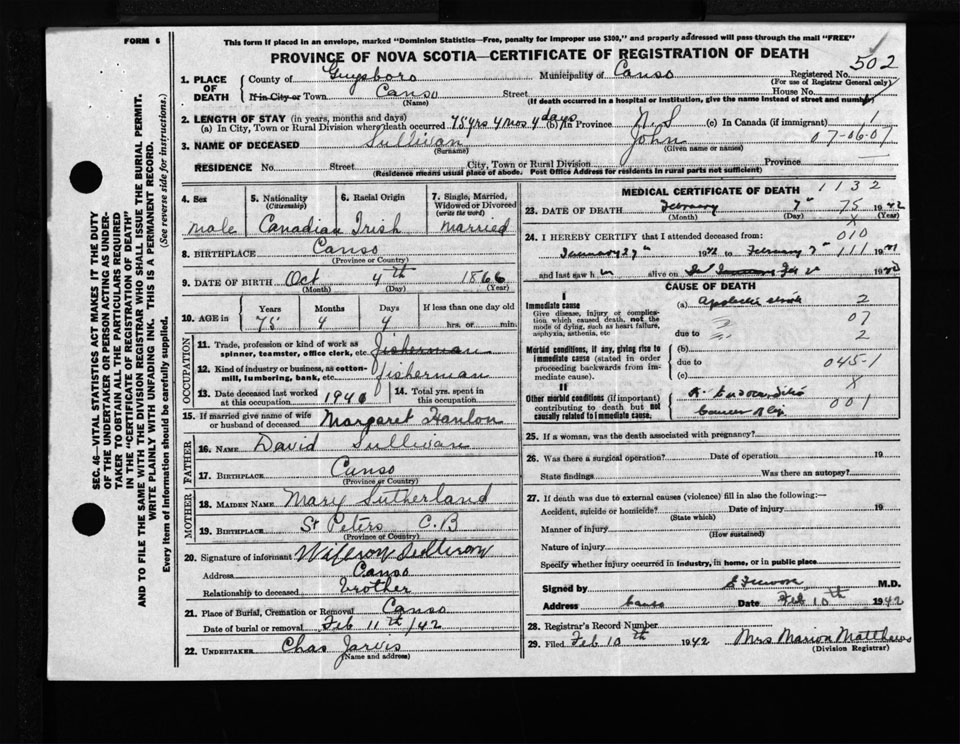 FORM 6
This form if placed in an envelope, marked "Dominion Statistics—Free, penalty for improper use $300," and properly addressed will pass through the mail "FREE"
PROVINCE OF NOVA SCOTIA—CERTIFICATE OF REGISTRATION OF DEATH
502
1. PLACE OF DEATH
County of Guysboro Municipality of Canso Registered No.
(For use of Registrar General only)
If in City or Town Canso Street House No.
(Name) (If death occurred in a hospital or institution, give the name instead of street and number)
2. LENGTH OF STAY (in years, months and days)
(a) In City, Town or Rural Division where death occurred 75 yrs 4 mos 4 days (b) In Province N.S (c) In Canada (if immigrant) 1
3. NAME OF DECEASED Sullivan John 07-06-01
(Surname) (Given name or names)
RESIDENCE No. Street City, Town or Rural Division Province
(Residence means usual place of abode. Post Office Address for residents in rural parts not sufficient)
4. Sex
male
5. Nationality (Citizenship)
Canadian
6. Racial Origin
Irish
7. Single, Married, Widowed or Divorced (write the word)
Married
8. BIRTHPLACE Canso
(Province or Country)
9. DATE OF BIRTH Oct 4th 1866
(Month) (Day) (Year)
10. AGE in Years Months Days If less than one day old
75 4 4 hrs. or min.
OCCUPATION
11. Trade, profession or kind of work as spinner, teamster, office clerk, etc. fisherman
12. Kind of industry or business, as cotton-mill, lumbering, bank, etc. fisherman
13. Date deceased last worked at this occupation 1940
14. Total yrs. spent in this occupation
15. If married give name of wife or husband of deceased Margaret Hanlon
FATHER
16. NAME David Sullivan
17. BIRTHPLACE Canso
(Province or Country)
MOTHER
18. MAIDEN NAME Mary Sutherland
19. BIRTHPLACE St Peters C.B
(Province or Country)
20. Signature of informant Sullivan
Address Canso
Relationship to deceased brother
21. Place of Burial, Cremation or Removal Canso
Date of burial or removal Feb 11th/42
22. UNDERTAKER Chas Jarvis
(Name and address)
MEDICAL CERTIFICATE OF DEATH
1132
23. DATE OF DEATH February 7th 75 1942
(Month) (Day) (Year)
X
010
24. I HEREBY CERTIFY that I attended deceased from:
1942 to February 7th 111 19
and last saw h alive on 19
CAUSE OF DEATH
I
Immediate cause (a) 2
Give disease, injury or complication which caused death, not the mode of dying, such as heart failure, asphyxia, asthenia, etc
07
due to 2
Morbid conditions, if any, giving rise to immediate cause (stated in order proceeding backwards from immediate cause).
(b)
due to 045-1
(c) X
II
Other morbid conditions (if important) contributing to death but not causally related to immediate cause.
001
25. If a woman, was the death associated with pregnancy?
26. Was there a surgical operation? Date of operation 19
State findings Was there an autopsy?
27. If death was due to external causes (violence) fill in also the following:—
Accident, suicide or homicide? Date of injury 19
(State which)
Manner of injury
(How sustained)
Nature of injury
Specify whether injury occurred in industry, in home, or in public place
Signed by M.D.
Address Canso Date Feb 10th 1942
28. Registrar's Record Number
29. Filed Feb 10th 1942 Mrs Marion Matthews
(Division Registrar)
SEC. 46—VITAL STATISTICS ACT MAKES IT THE DUTY
OF THE UNDERTAKER OR PERSON ACTING AS UNDER-
TAKER TO OBTAIN ALL THE PARTICULARS REQUIRED
IN THE "CERTIFICATE OF REGISTRATION OF DEATH"
AND TO FILE THE SAME WITH THE DIVISION REGISTRAR WHO SHALL ISSUE THE BURIAL PERMIT.
WRITE PLAINLY WITH UNFADING INK. THIS IS A PERMANENT RECORD.
Every item of information should be carefully supplied. (See reverse side for instructions.)